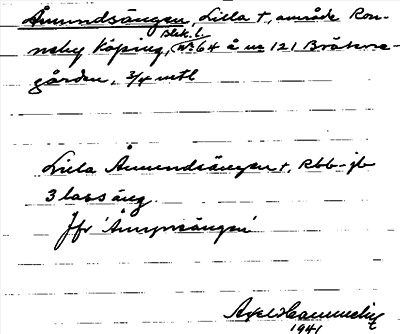 Åmundsängen, Lilla †, område Ron-
neby köping, Blek. l. № 64 å nr 121 Bräkne-
gården, 3/4 mtl
Lilla Åmundsängen †, Rbb-jb
3 lass äng.
Jfr 'Ånymsängen'
Axel
1941